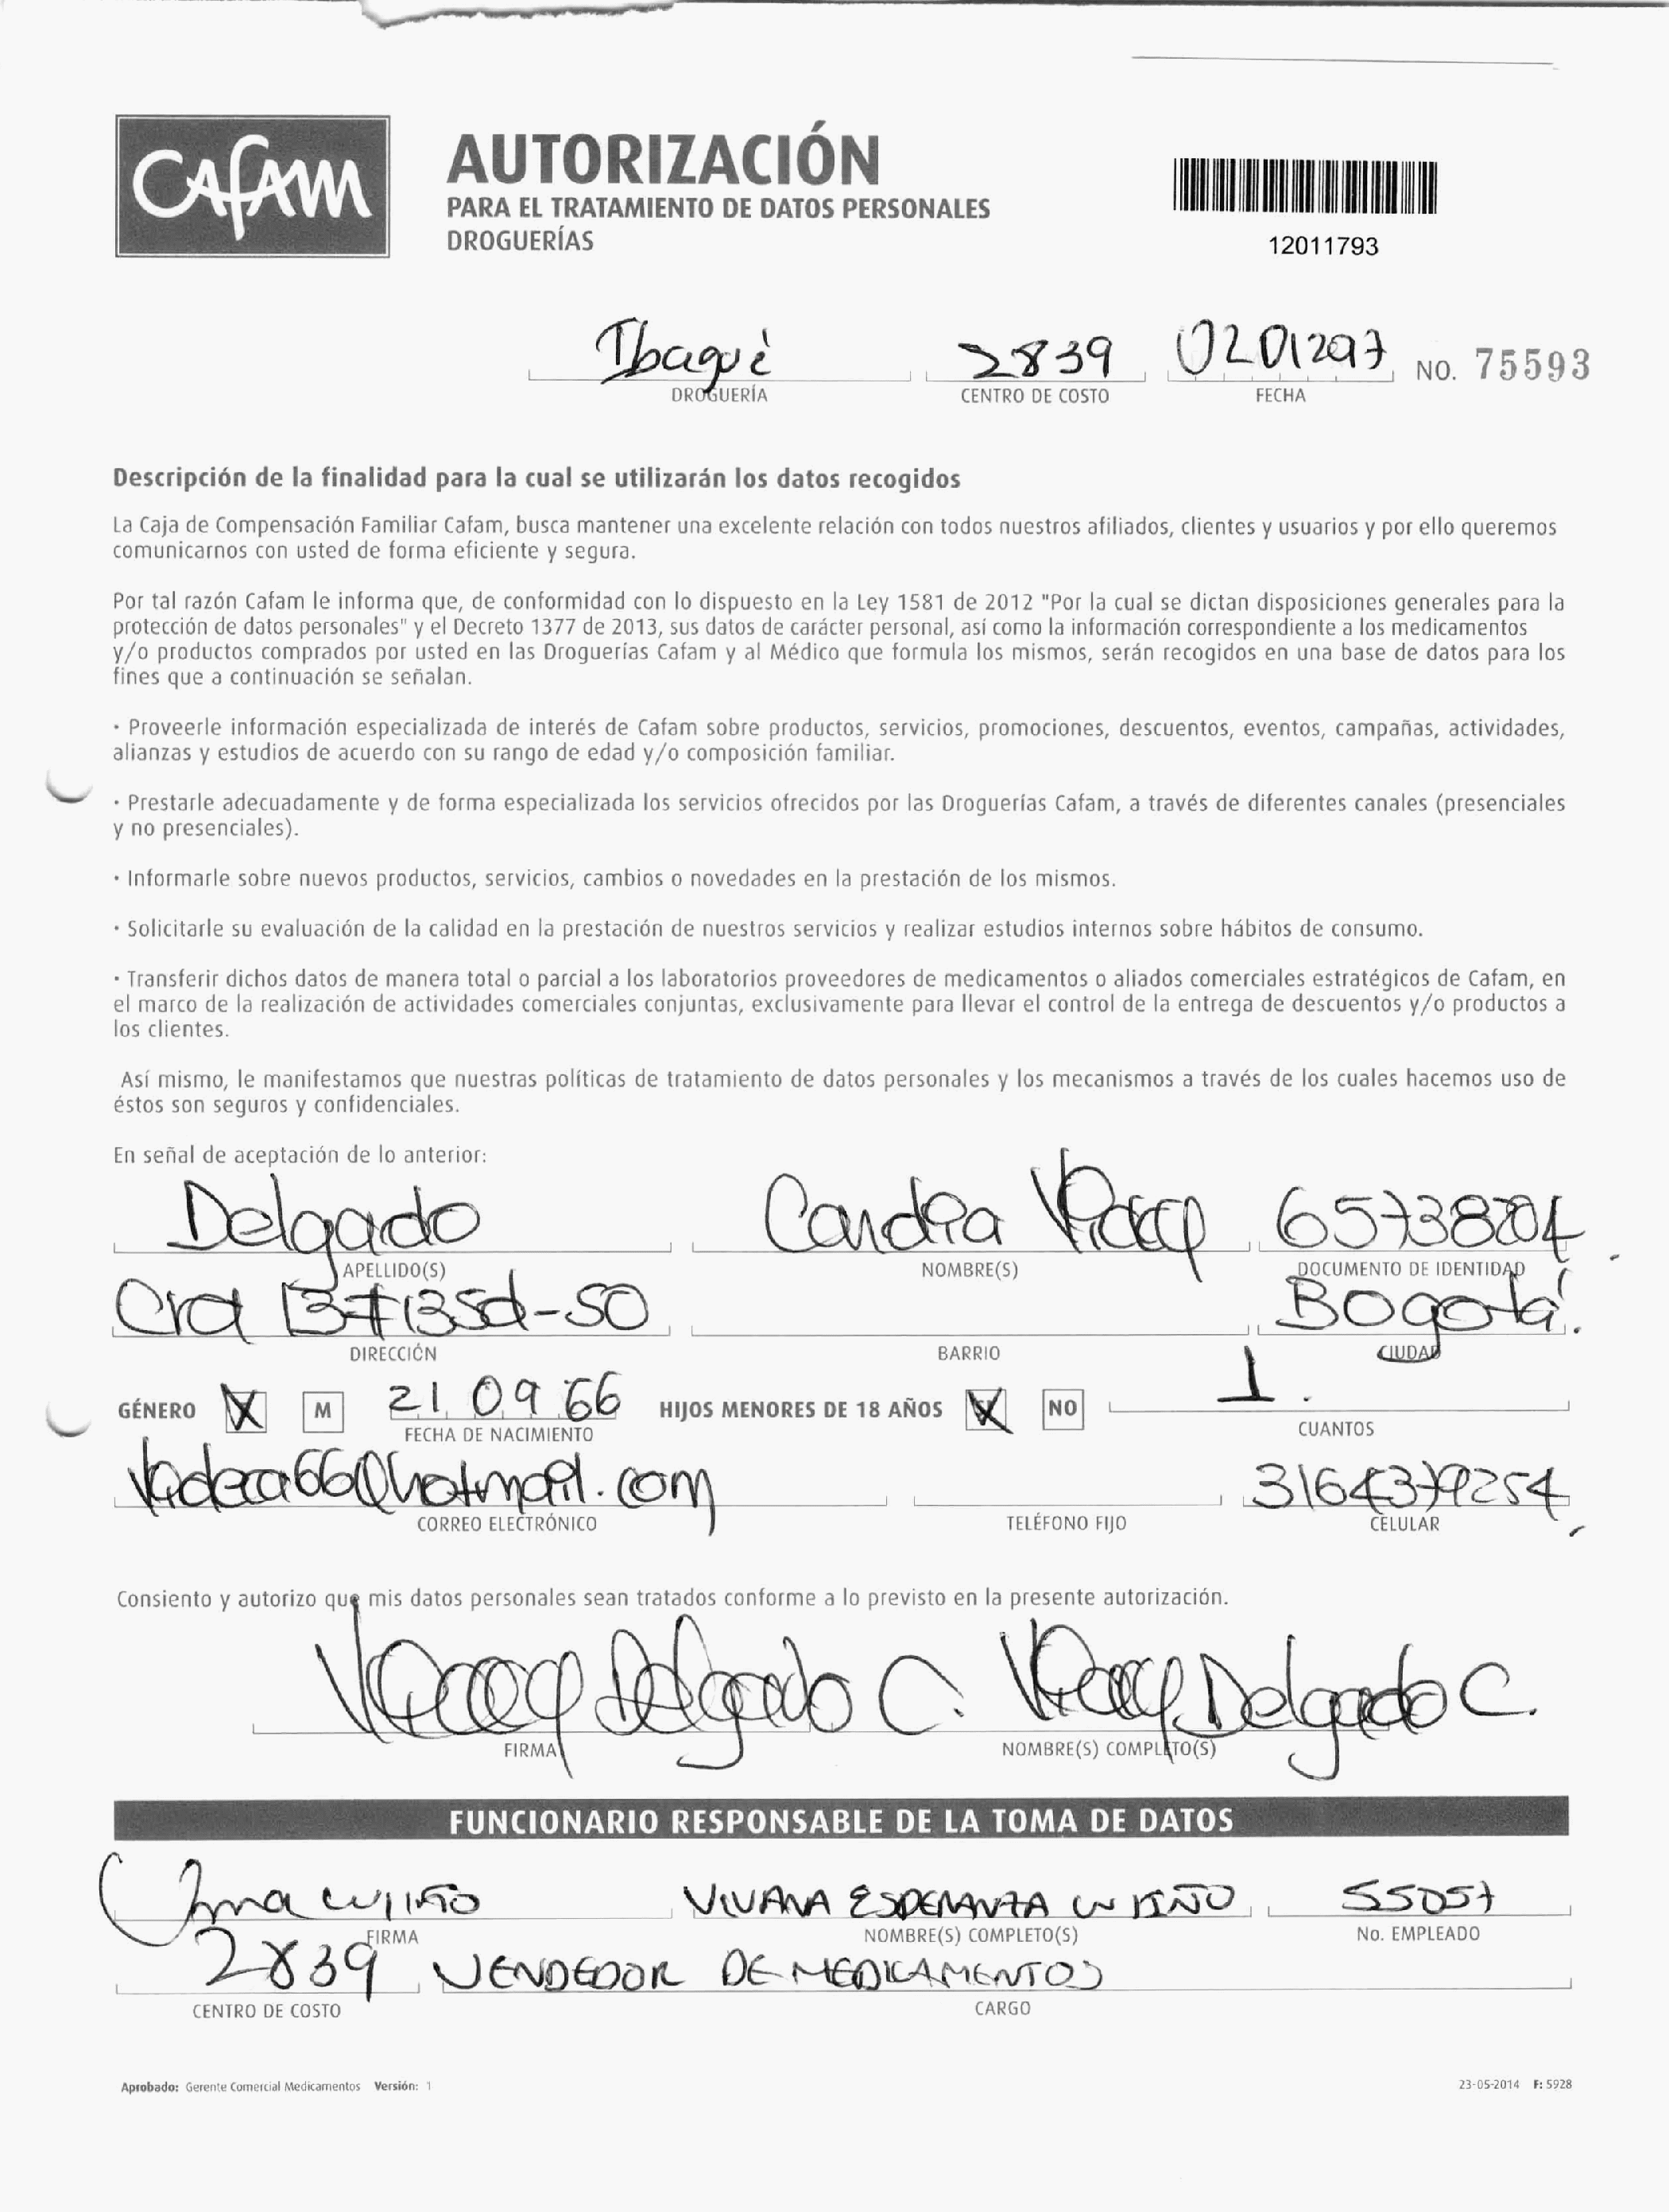 CAFAM
AUTORIZACIÓN
PARA EL TRATAMIENTO DE DATOS PERSONALES
DROGUERÍAS
12011793
Ibagué 2839 NO. 75593
DROGUERÍA CENTRO DE COSTO FECHA
Descripción de la finalidad para la cual se utilizarán los datos recogidos
La Caja de Compensación Familiar Cafam, busca mantener una excelente relación con todos nuestros afiliados, clientes y usuarios y por ello queremos
comunicarnos con usted de forma eficiente y segura.
Por tal razón Cafam le informa que, de conformidad con lo dispuesto en la Ley 1581 de 2012 "Por la cual se dictan disposiciones generales para la
protección de datos personales" y el Decreto 1377 de 2013, sus datos de carácter personal, así como la información correspondiente a los medicamentos
y/o productos comprados por usted en las Droguerías Cafam y al Médico que formula los mismos, serán recogidos en una base de datos para los
fines que a continuación se señalan.
· Proveerle información especializada de interés de Cafam sobre productos, servicios, promociones, descuentos, eventos, campañas, actividades,
alianzas y estudios de acuerdo con su rango de edad y/o composición familiar.
· Prestarle adecuadamente y de forma especializada los servicios ofrecidos por las Droguerías Cafam, a través de diferentes canales (presenciales
y no presenciales).
· Informarle sobre nuevos productos, servicios, cambios o novedades en la prestación de los mismos.
· Solicitarle su evaluación de la calidad en la prestación de nuestros servicios y realizar estudios internos sobre hábitos de consumo.
· Transferir dichos datos de manera total o parcial a los laboratorios proveedores de medicamentos o aliados comerciales estratégicos de Cafam, en
el marco de la realización de actividades comerciales conjuntas, exclusivamente para llevar el control de la entrega de descuentos y/o productos a
los clientes.
Así mismo, le manifestamos que nuestras políticas de tratamiento de datos personales y los mecanismos a través de los cuales hacemos uso de
éstos son seguros y confidenciales.
En señal de aceptación de lo anterior:
Delgado
APELLIDO(S) NOMBRE(S) DOCUMENTO DE IDENTIDAD
Cra Bogotá.
DIRECCIÓN BARRIO CIUDAD
GÉNERO X M 21 09 66 HIJOS MENORES DE 18 AÑOS X NO 1.
FECHA DE NACIMIENTO CUANTOS
3164379254
CORREO ELECTRÓNICO TELÉFONO FIJO CELULAR
Consiento y autorizo que mis datos personales sean tratados conforme a lo previsto en la presente autorización.
Delgado C. Delgado C.
FIRMA NOMBRE(S) COMPLETO(S)
FUNCIONARIO RESPONSABLE DE LA TOMA DE DATOS
55057
FIRMA NOMBRE(S) COMPLETO(S) No. EMPLEADO
2839 VENDEDOR DE MEDICAMENTOS
CENTRO DE COSTO CARGO
Aprobado: Gerente Comercial Medicamentos Versión: 1 23-05-2014 F: 5928